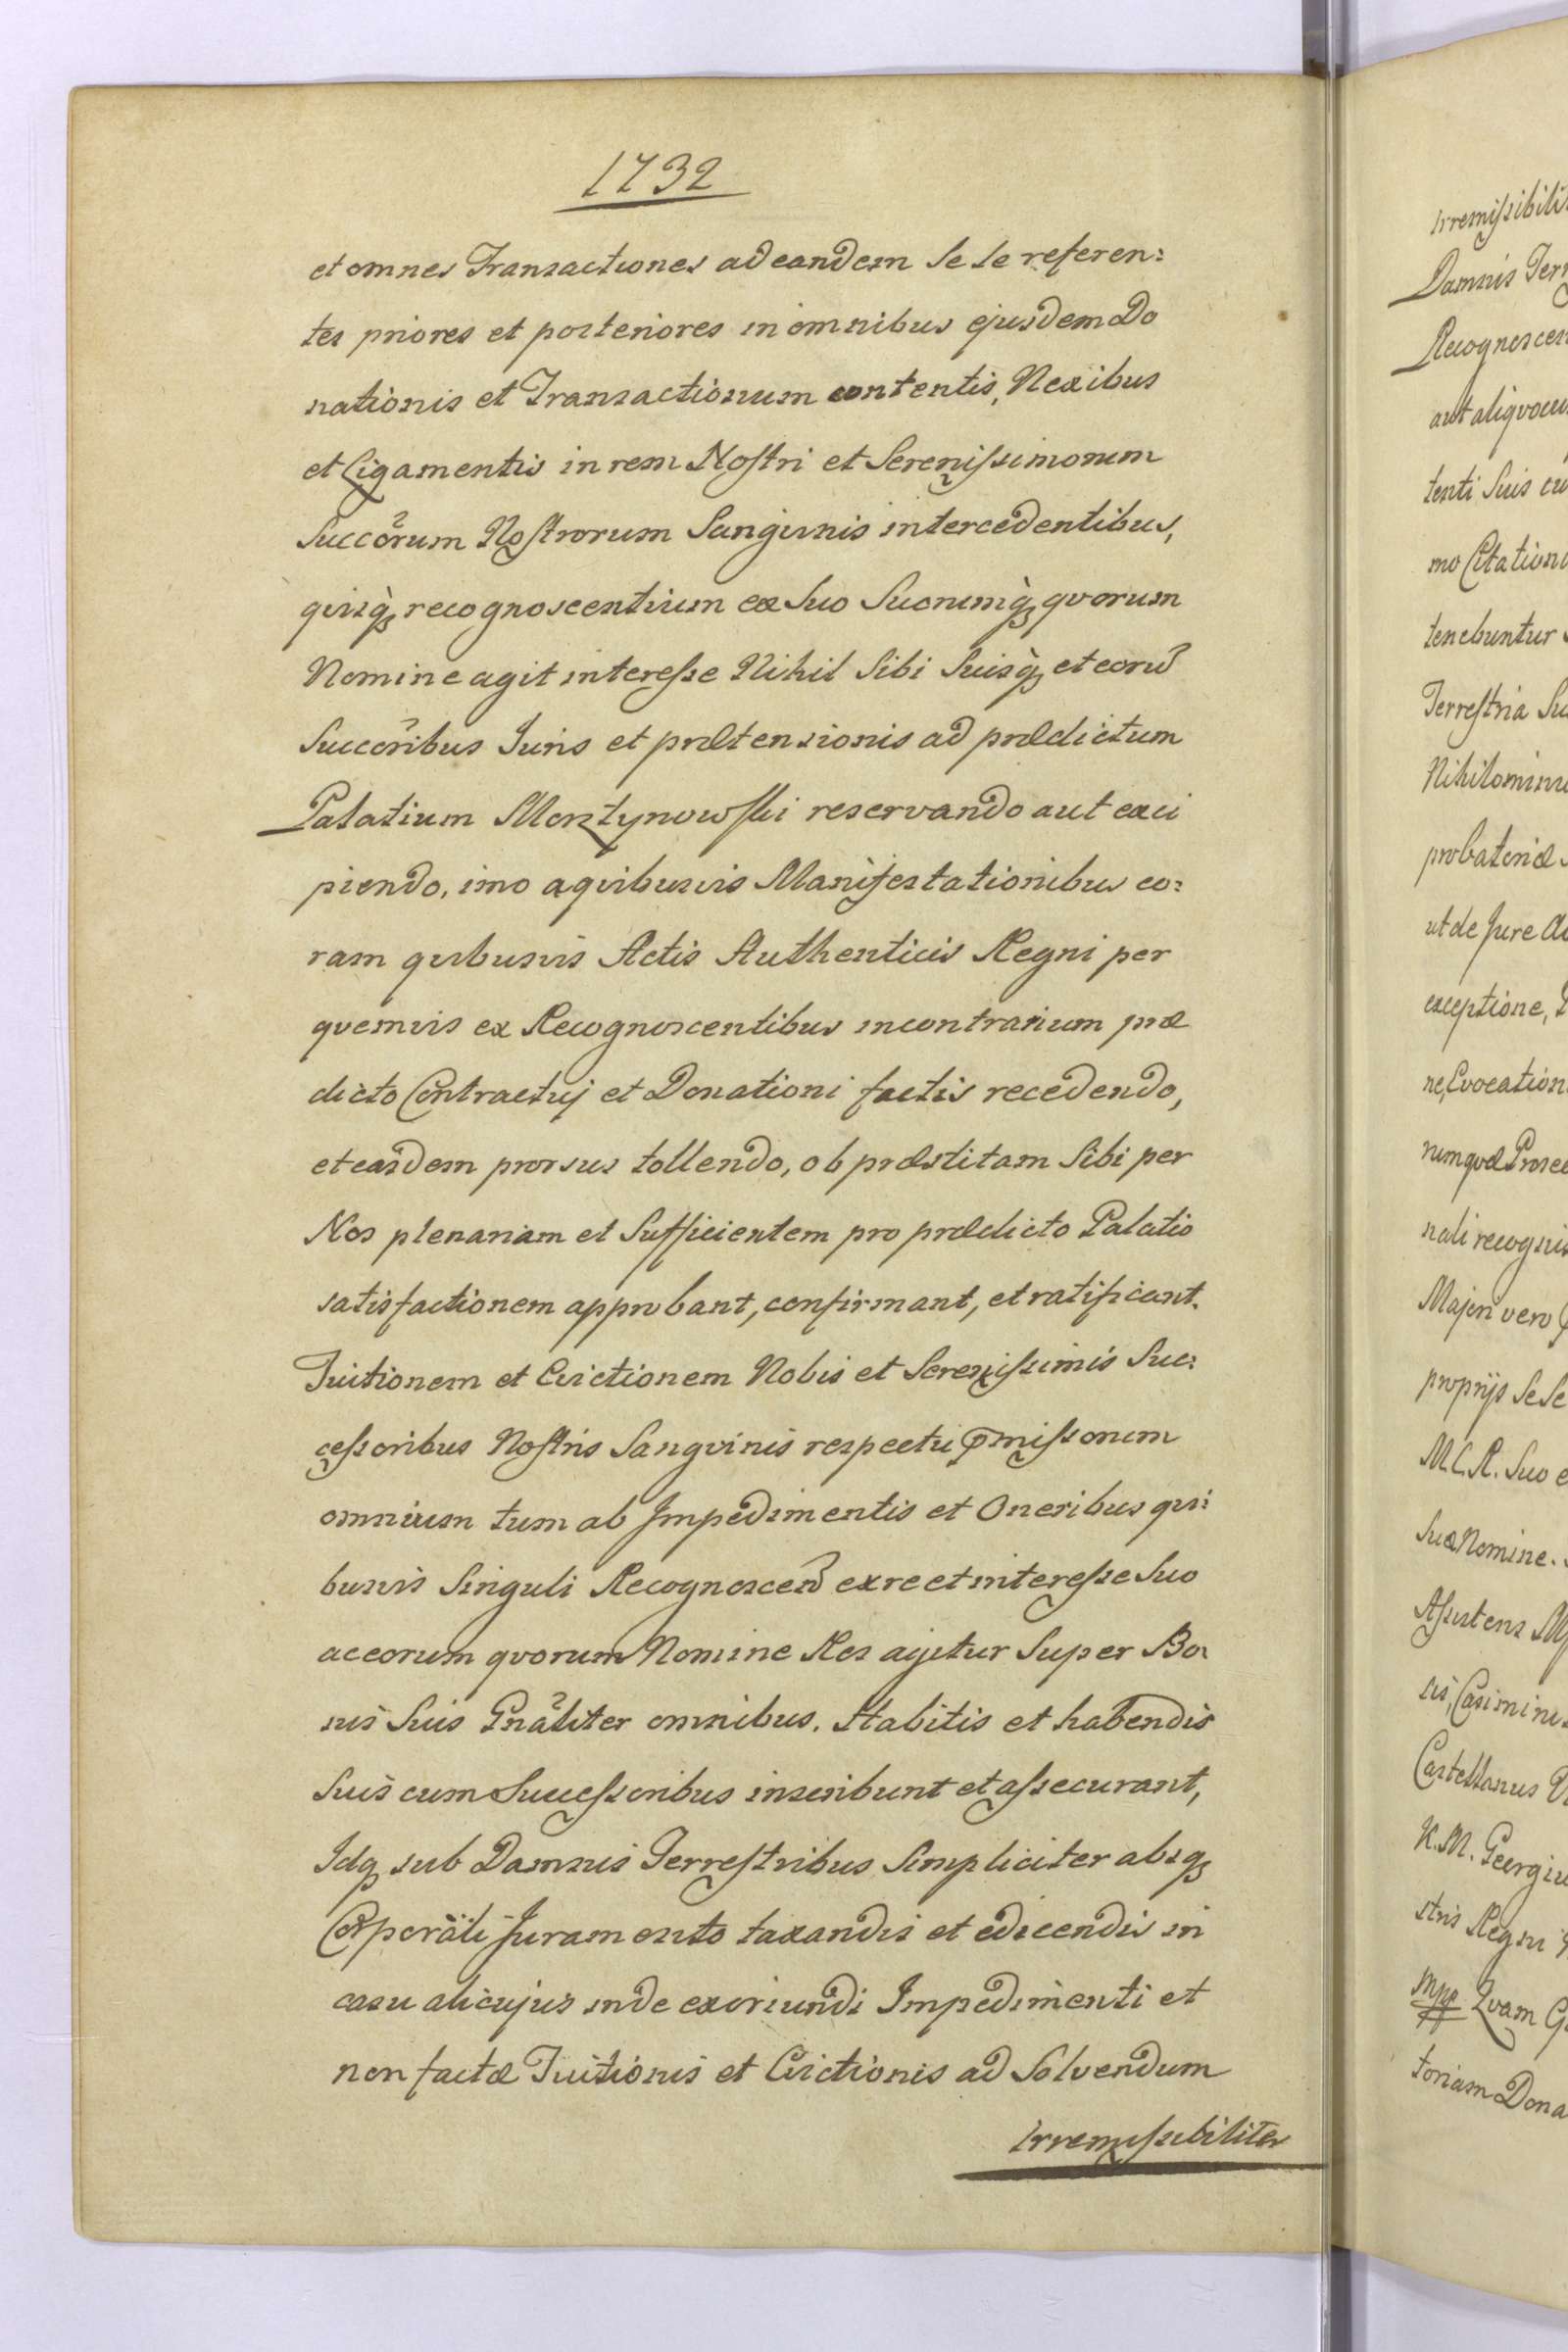 1732
et omnes Transactiones ad eandem Se se referen:
tes priores et posteriores in omnibus ejusdem Do
nationis et Transactionum contentis, Nexibus
et Ligamentis in rem Nostri et Serenissimorum
Succõrum Nostrorum Sangvinis intercedentibus,
qvisq̀; recognoscentium ex Suo Suorumq̀; qvorum
Nomine agit interesse Nihil Sibi Suisq̀; et eorũ
Succõribus Juris et prætensionis ad prædictum
Palatium Morztynowski reservando aut exci
piendo, imo a qvibusvis Manifestationibus co:
ram qvibusvis Actis Authenticis Regni per
qvemvis ex Recognoscentibus in contrarium præ
dicto Contractuj et Donationi factis recedendo,
et easdem prorsus tollendo, ob præstitam Sibi per
Nos plenariam et Sufficientem pro prædicto Palatio
satisfactionem approbant, confirmant, et ratificant.
Tuitionem et Evictionem Nobis et Serenissimis Suc:
cessoribus Nostris Sangvinis respectu p̄missorum
omnium tum ab Impedimentis et Oneribus qvi:
busvis Singuli Recognoscen̄ ex re et interesse Suo
ac eorum qvorum Nomine Res agitur Super Bo:
nis Suis Gnãliter omnibus. Habitis et habendis
Suis cum Successoribus inscribunt et assecurant,
Idq; sub Damnis Terrestribus Simpliciter absq;
Corporãli Juramento taxandis et edicendis in
casu alicujus inde exoriundi Impedimenti et
non factæ Tuitionis et Evictionis ad Solvendum
Irremissibiliter
Irremissibili
Damnis
Recognoscen
aut
tenti Suis
mo Citation
tenebuntur
Terrestria
Nihilominu
probatoriæ
ut de Jure
exceptione,
ne, Evocation
numqvæ
nali
Majori vero
proprijs Se Se
M.C.R. Suo
Suæ Nomine.
Assistens
cis, Casimirus
Castellanus
K.M. Georgiu
stris Regni
mpp Qvam
toriam Dona